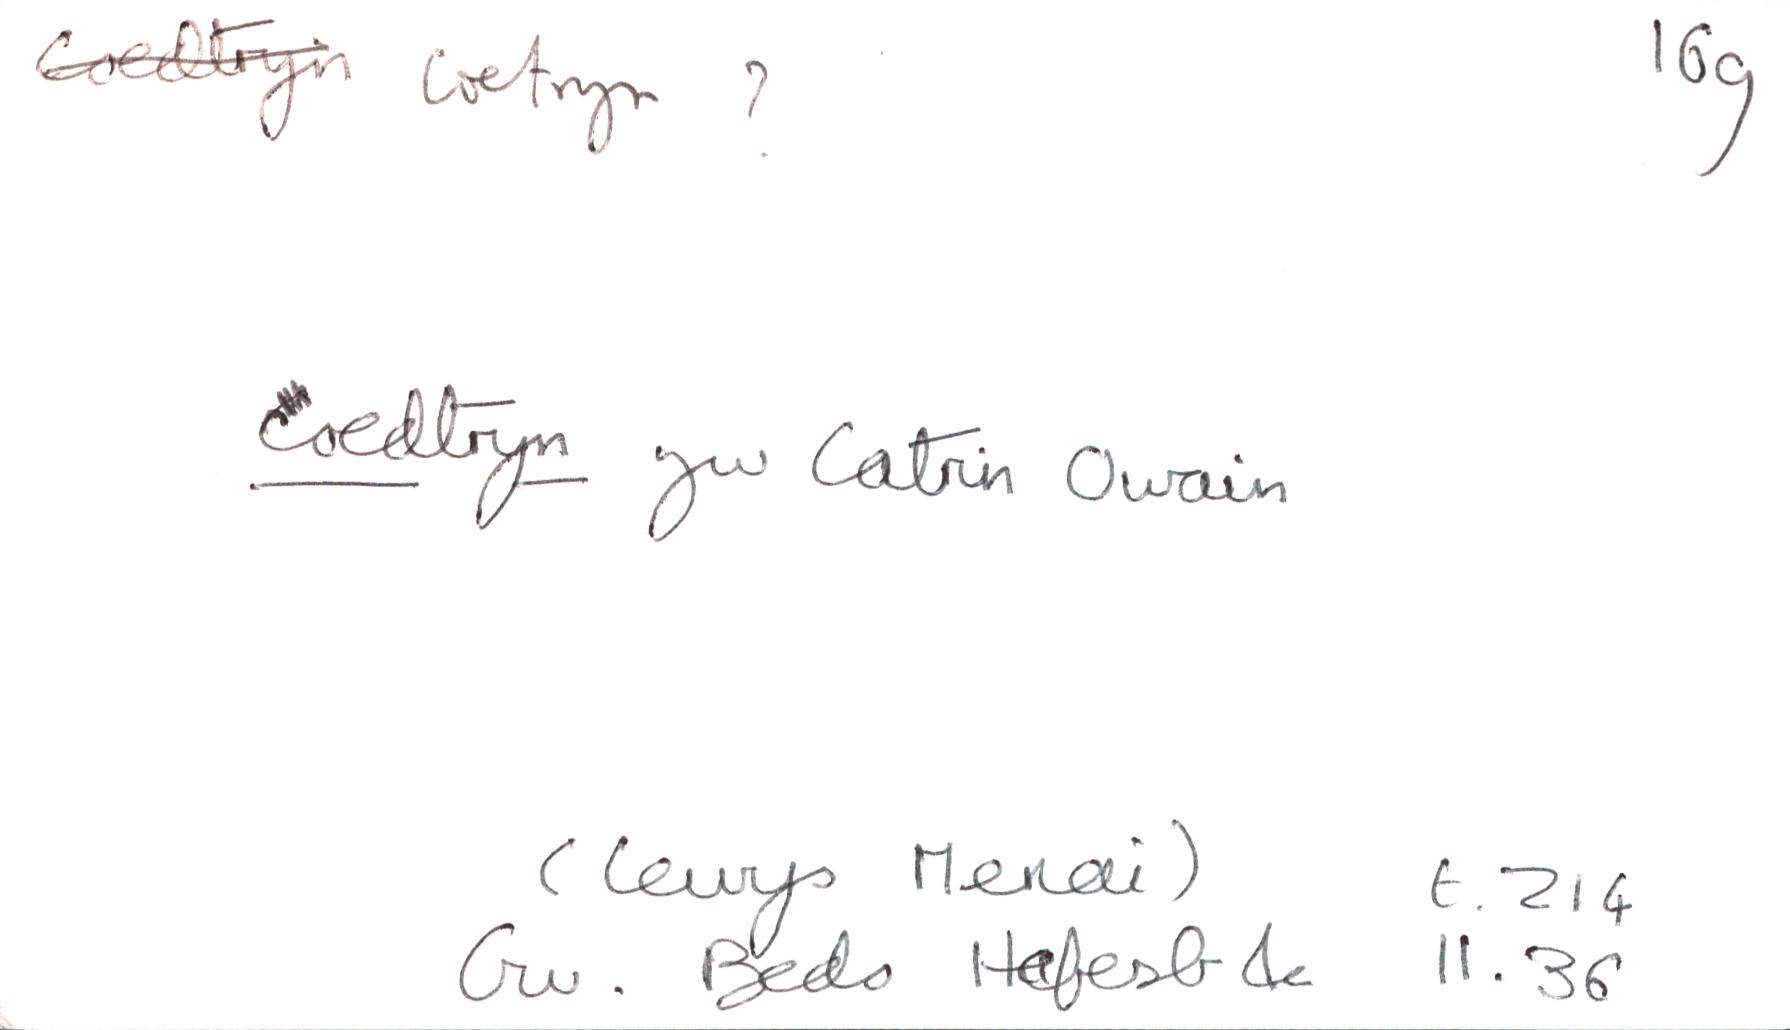 ~~Coedtryn~~ Coetryn ? 16g
Coedtryn yw Catrin Owain
(Lewys Menai) t. 214
Gw. Beds Hafesb &c ll. 36